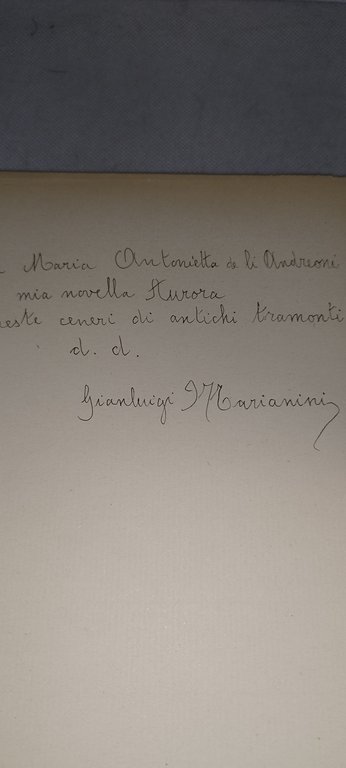 Maria Antonietta de li Andreoni
mia novella Aurora
ceneri di antichi tramonti
d. d.
Gianluigi Marianini